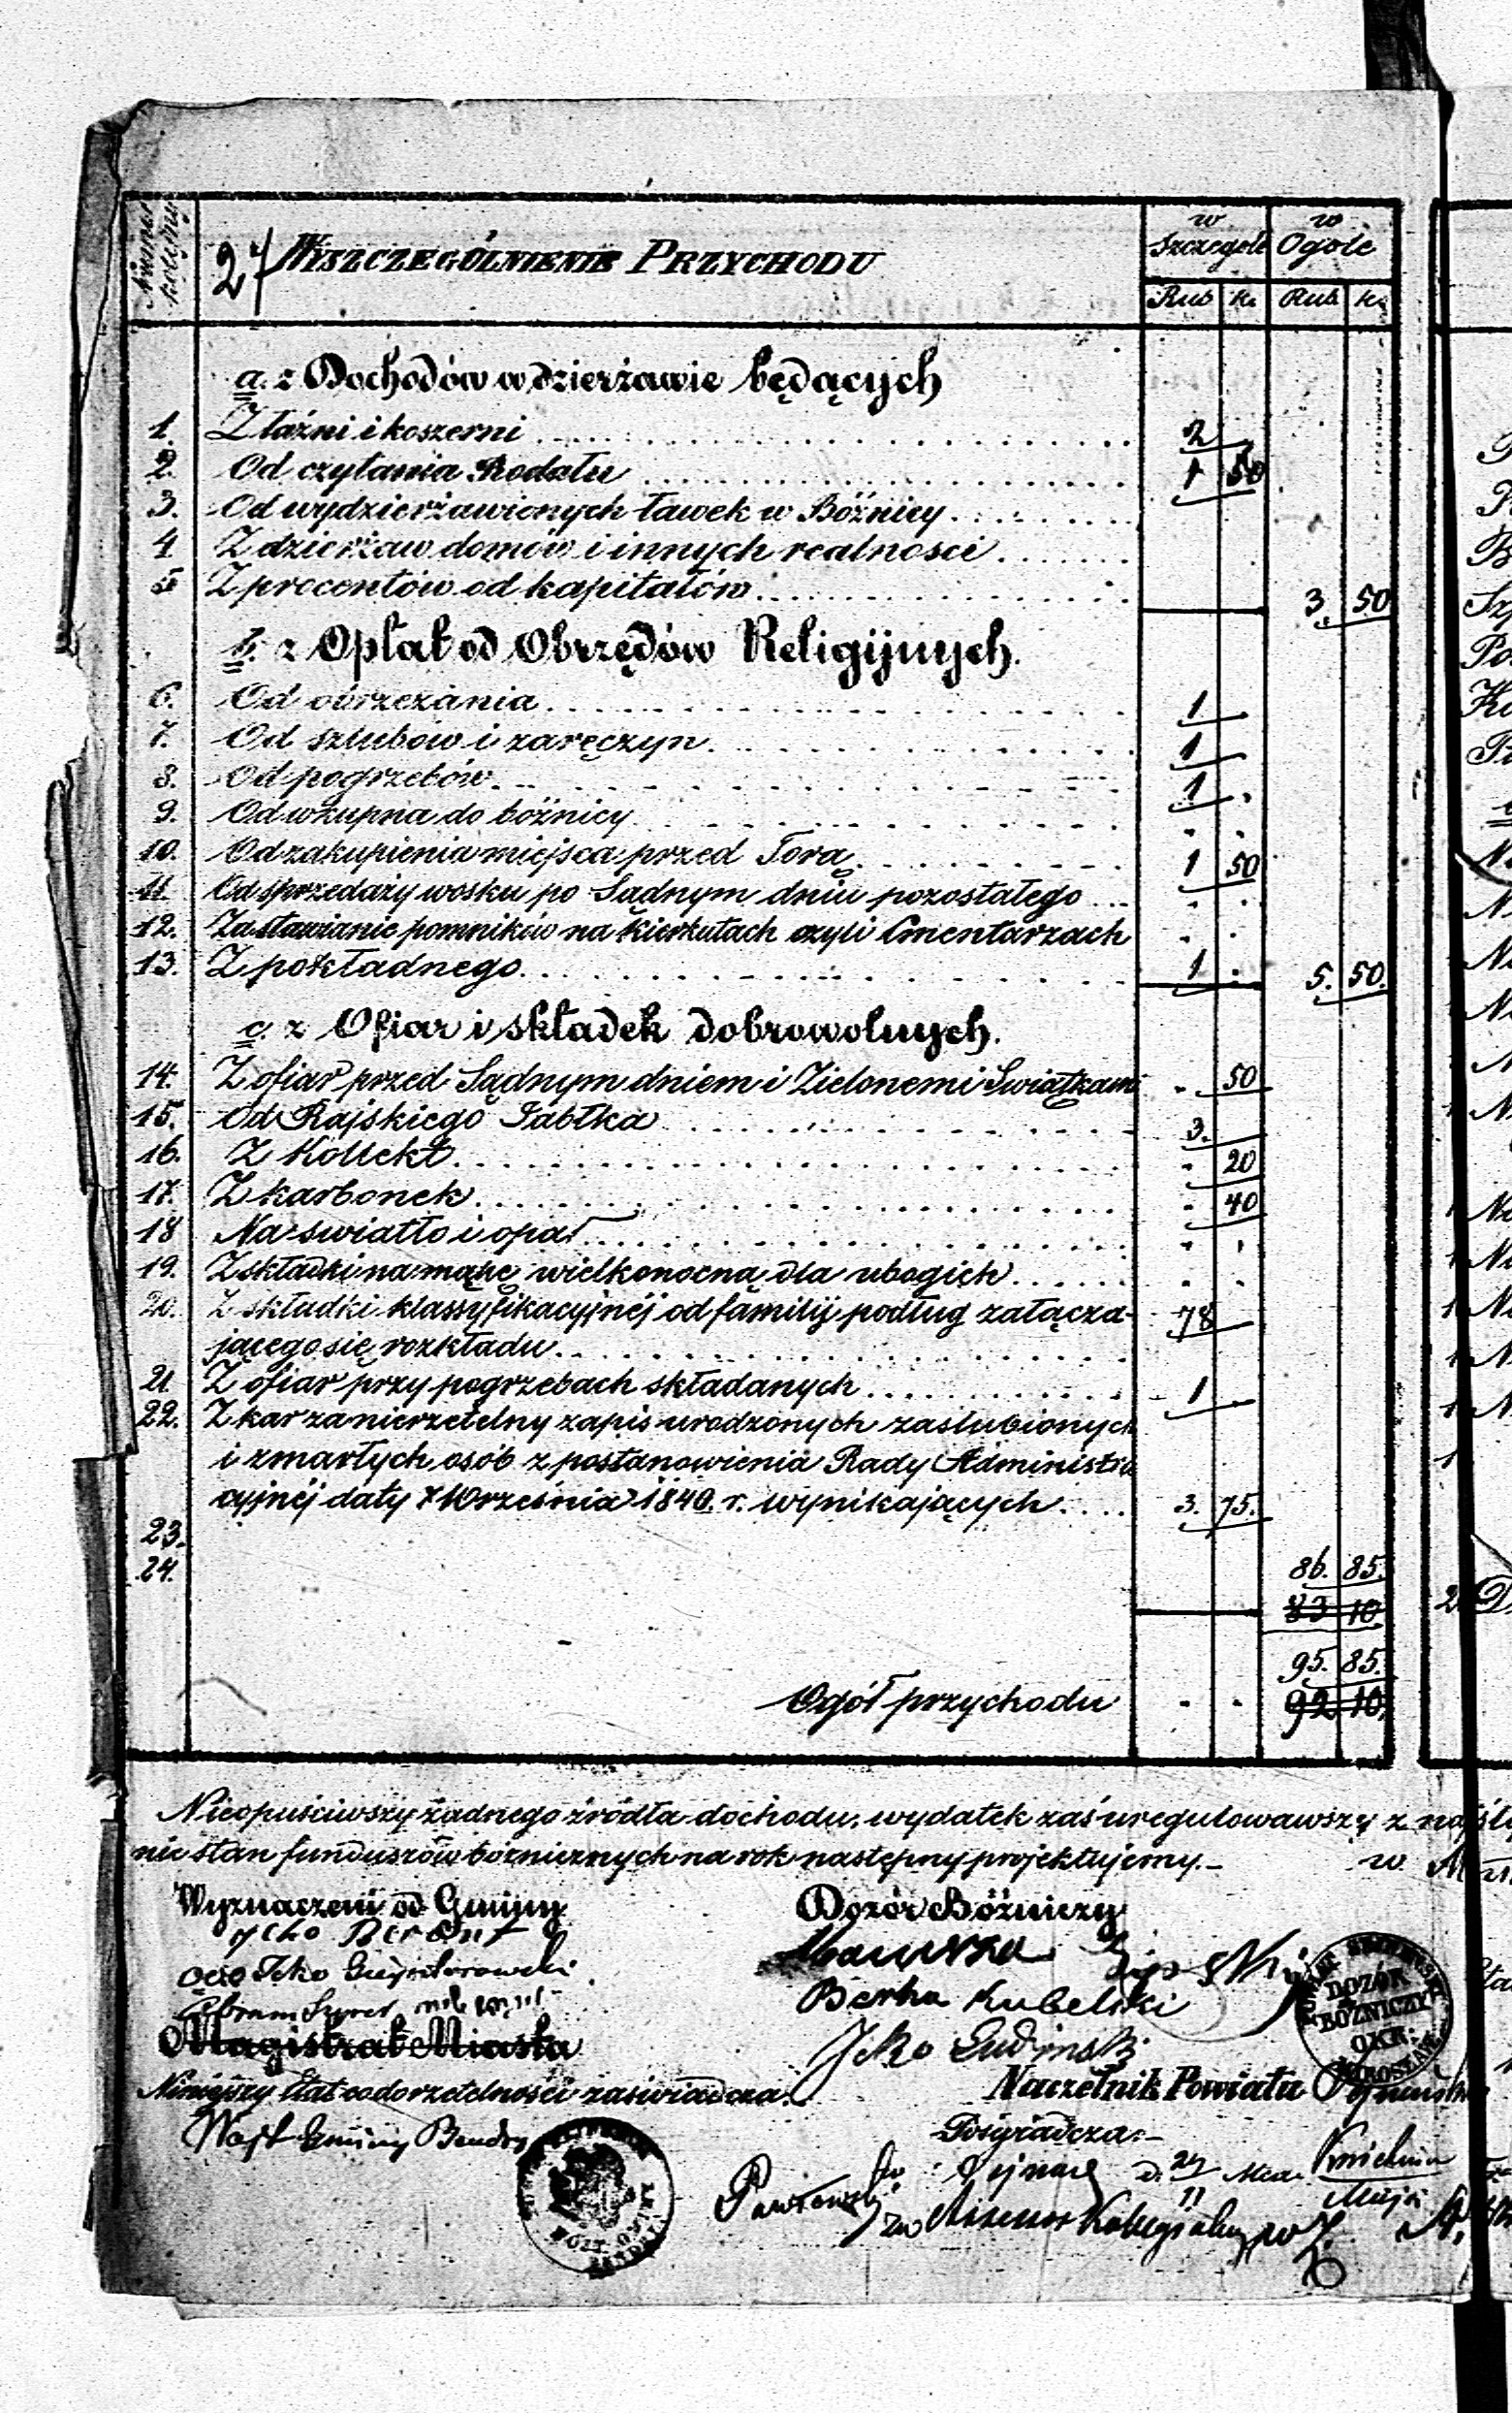 Numer kolejny
27 WYSZCZEGÓLNIENIE PRZYCHODU
w Szczegole
w Ogóle
Rub k. Rub k.
a. z Dochodów w dzierżawie będących
1. Z łaźni i koszerni 2
2. Od czytania Rodału 1 50
3. Od wydzierżawionych ławek w Bóżnicy
4 Z dzierżaw domów i innych realnosci
5 Z procentów od kapitałów 3. 50
b. z Opłat od Obrzędów Religijnych.
6. Od obrzezania 1
7. Od szlubów i zaręczyn 1
8. Od pogrzebów 1
9. Od wkupna do bóżnicy
10. Od zakupienia miejsca przed Torą 1 50
11. Od sprzedaży wosku po Sądnym dniu pozostałego
12. Za stawianie pomników na Kierkutach czyli Cmentarzach
13. Z pokładnego 1 5. 50.
c. z Ofiar i składek dobrowolnych.
14. Z ofiar przed Sądnym dniem i Zielonemi Swiątkami 50
15. Od Rajskiego Jabłka 3.
16. Z Kollekt 20
17. Z karbonek 40
18 Na swiatło i opał
19. Z składki na mącę wielkonocną dla ubogich
20. Z składki klassyfikacyjnéj od familij podług załącza- 78
jącego się rozkładu
21. Z ofiar przy pogrzebach składanych 1
22. Z kar za nierzetelny zapis urodzonych zaslubionych
i zmarłych osób z postanowienia Rady Administra
cyjnéj daty 7 Września 1840. r. wynikających 3. 75.
23.
24. 86. 85.
83 10
95. 85.
Ogół przychodu 92 10.
Nieopuściwszy żadnego źródła dochodu, wydatek zaś uregulowawszy z
nie stan funduszów bóżnicznych na rok następny projektujemy.
Wyznaczeni od Gminy
Dozór Bóżniczy
Berka Kubelski
Icko Ludwinski
DOZÓR BÓŻNICZY OKR:
Magistrat Miasta
Niniejszy Etat co do rzetelności zaświadcza.
Naczelnik Powiatu
Wójt Gminy
Poświadcza:
WÓJT
Assessor Kollegialny